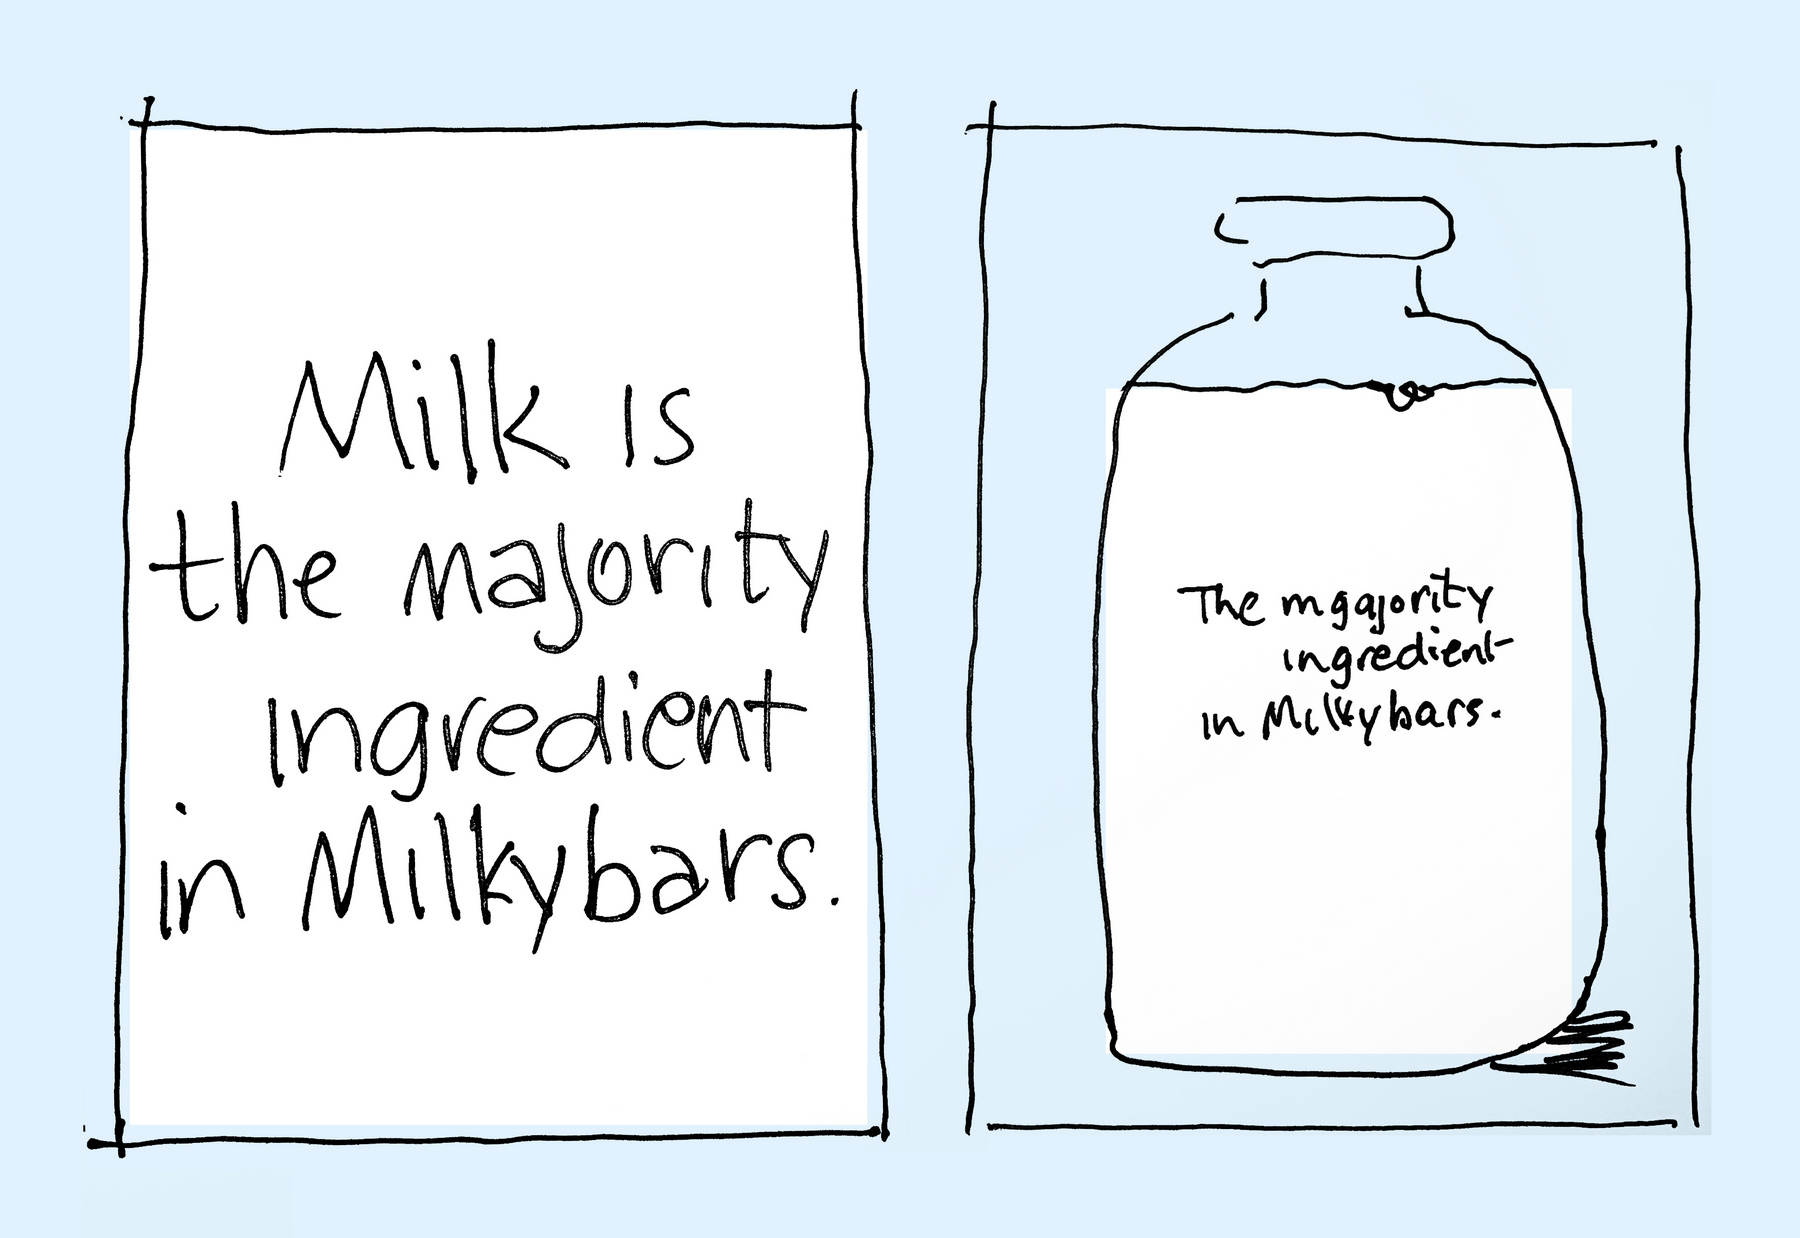 Milk is
the majority
ingredient
in Milkybars.
The mgajority
ingredient
in Milkybars.